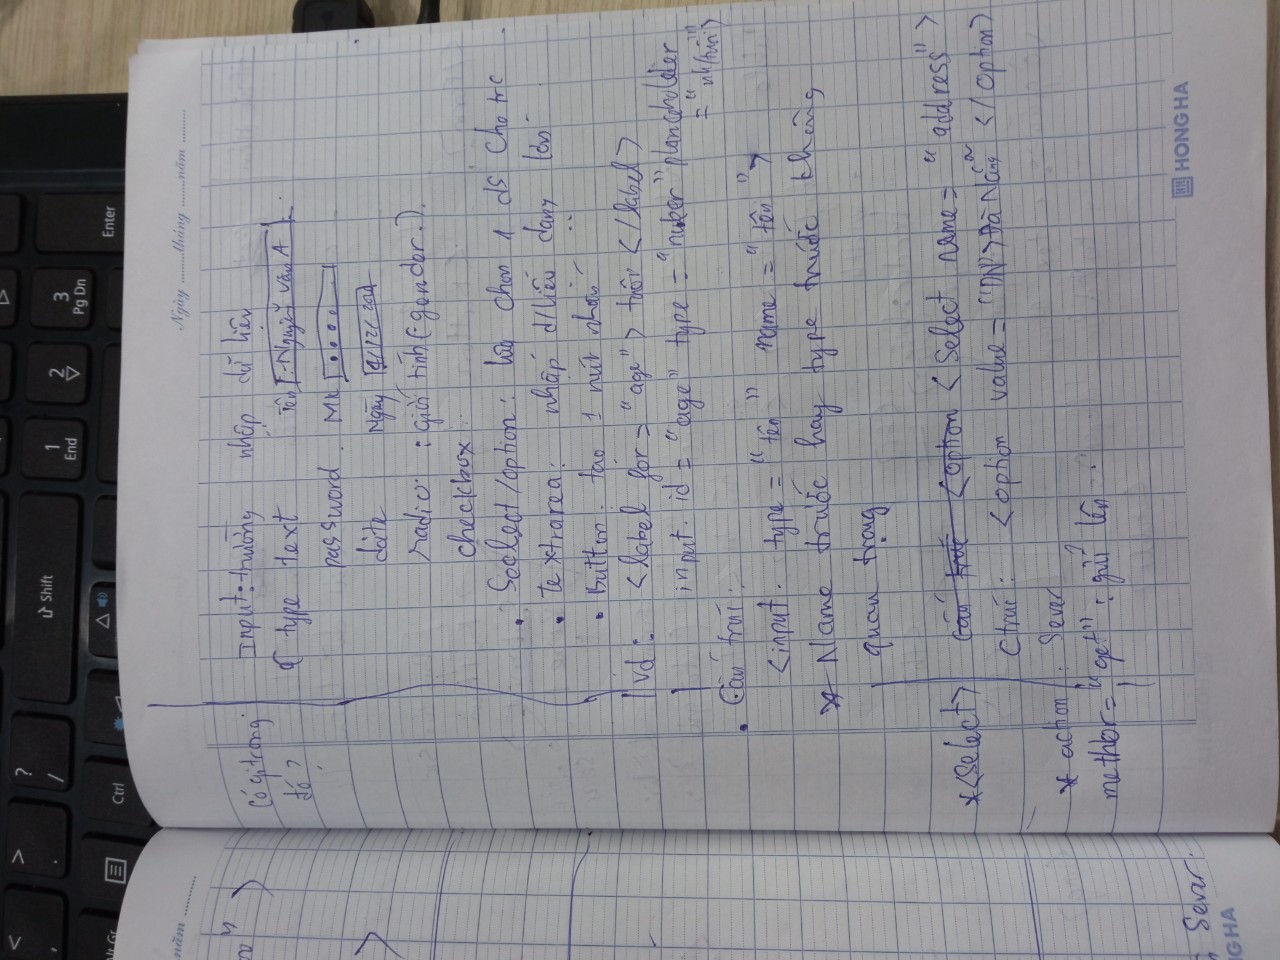 Ngày ......... tháng ......... năm .........
Có gì trong đó?
Input: trường nhập dữ liệu
type text tên: Nguyễn Văn A
password. MK ....
date ngày
radio: giới tính (gender.)
checkbox:
Soclect/option: chọn 1 ds cho trc
textarea: nhập d/liệu dạng lớn
• button: tạo 1 nút nhấn
Vd: <label for = "age"> tuổi </label>
input. id = "age" type = "nuber" plancoholder
• Cấu trúi:
<input. type = "tên" name = "tên">
* Name trước hay type trước không
quan trọng
*<Select> Cấu trúc <option <Select name = "address">
Ctrúi: <option value = "DN"> Đà Nẵng </option>
* action: Sever
methor = "get": gửi lên ...
HONG HA
năm .........
Sever.
NG HA
Enter
3 Pg Dn
2
1 End
Shift
? /
Ctrl
> .
< ,
Alt Gr